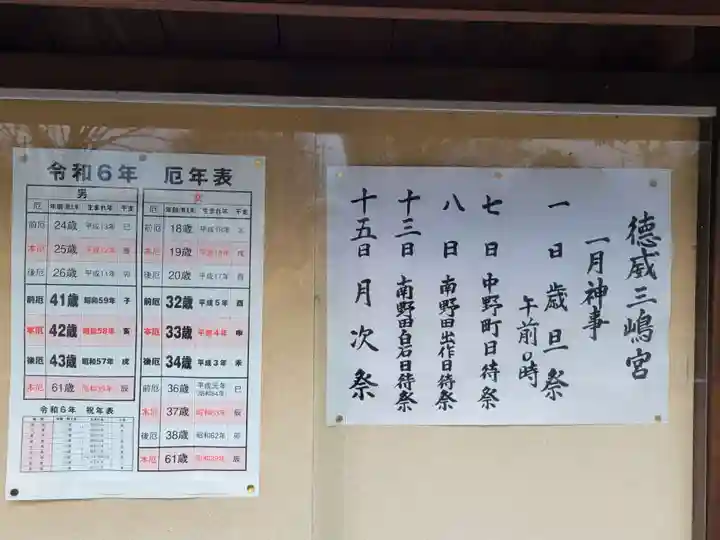 徳威三嶋宮
一月神事
一日 歳旦祭
午前0時
七日 中野町日待祭
八日 南野田出作日待祭
十三日 南野田白石日待祭
十五日 月次祭
令和6年 厄年表
男
厄 年齢(数え年) 生まれ年 干支
前厄 24歳 平成13年 巳
本厄 25歳 平成12年 辰
後厄 26歳 平成11年 卯
前厄 41歳 昭和59年 子
本厄 42歳 昭和58年 亥
後厄 43歳 昭和57年 戌
本厄 61歳 昭和39年 辰
女
厄 年齢(数え年) 生まれ年 干支
前厄 18歳 平成19年 亥
本厄 19歳 平成18年 戌
後厄 20歳 平成17年 酉
前厄 32歳 平成5年 酉
本厄 33歳 平成4年 申
後厄 34歳 平成3年 未
前厄 36歳 平成元年 昭和64年
本厄 37歳 昭和63年 辰
後厄 38歳 昭和62年 卯
本厄 61歳 昭和39年 辰
令和6年 祝年表